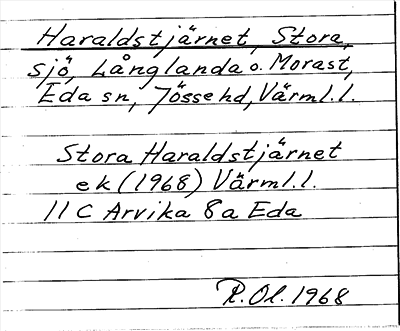 Haraldstjärnet, Stora,
sjö, Långlanda o. Morast,
Eda sn, Jösse hd, Värml. l.
Stora Haraldstjärnet
ek (1968) Värml. l.
11 C Arvika 8 a Eda
R. Ol. 1968